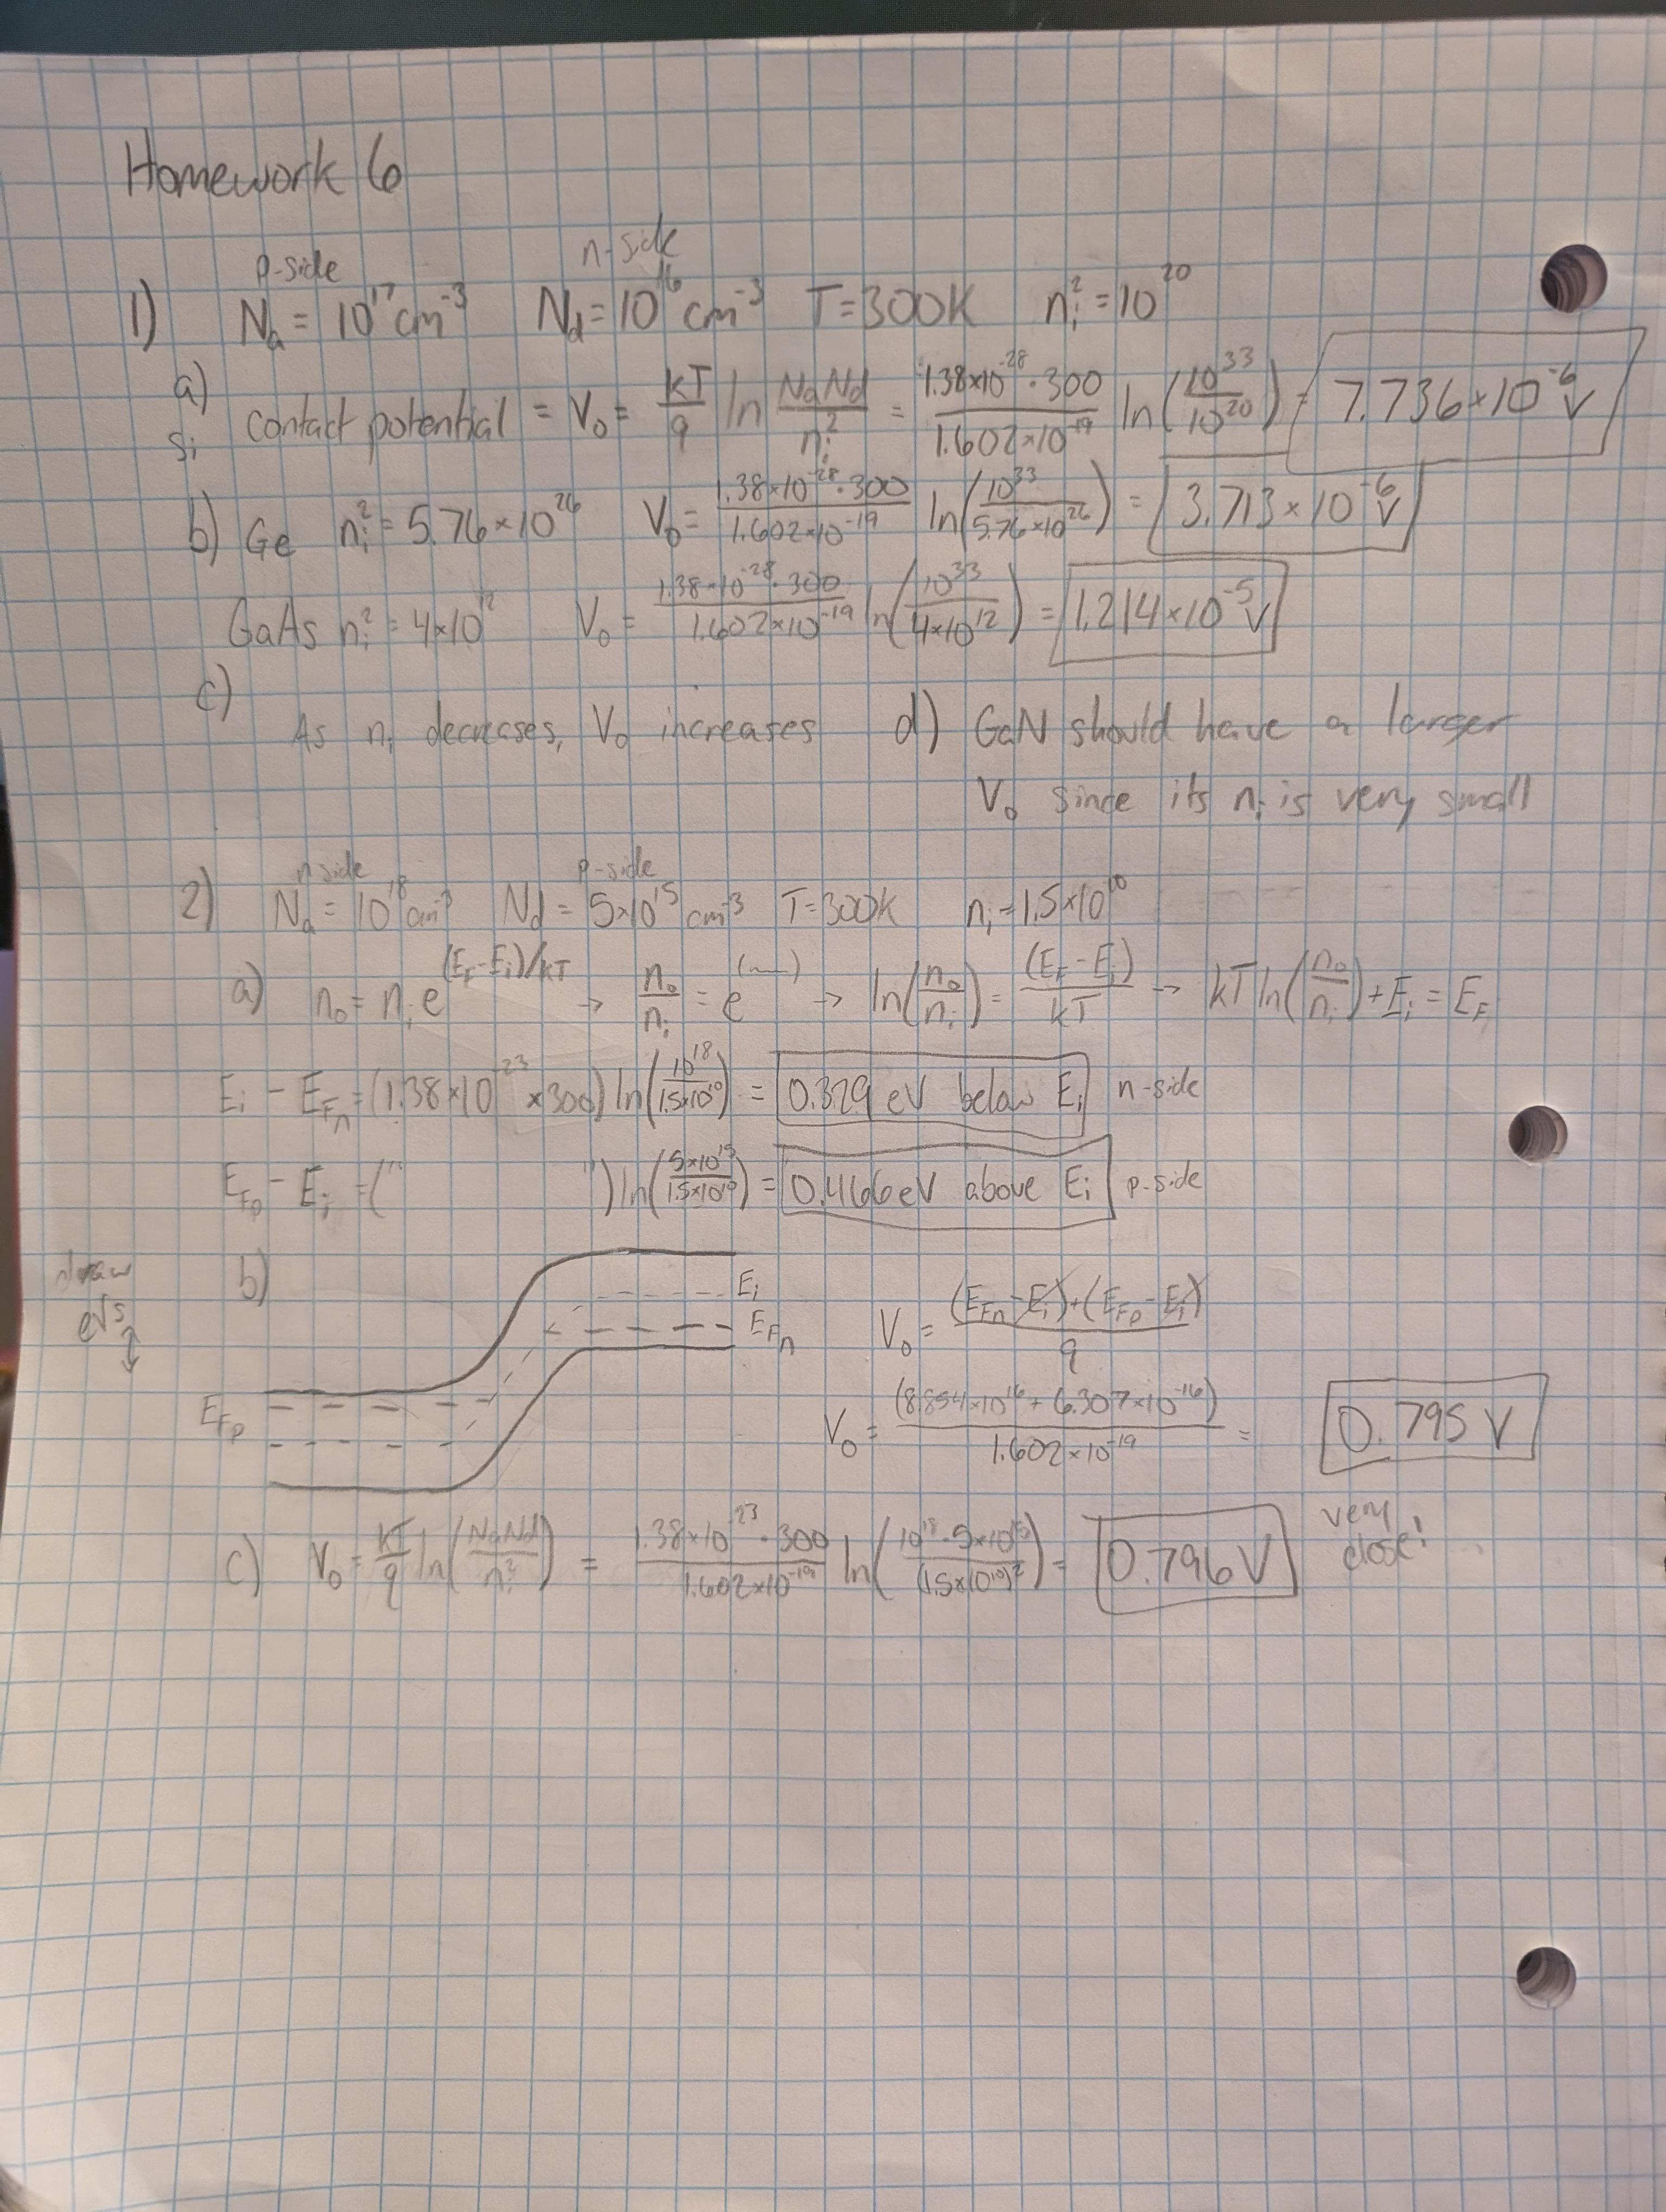 Homework 6
p-side n-side
1) Na = 10¹⁷ cm⁻³ Nd = 10¹⁶ cm⁻³ T = 300K nᵢ² = 10²⁰
a) Si contact potential = V₀ = kT/q ln NaNd/nᵢ² = 1.38×10⁻²⁸·300/1.602×10⁻¹⁹ ln(10³³/10²⁰) = 7.736×10⁻⁶ V
b) Ge nᵢ² = 5.76×10²⁶ V₀ = 1.38×10⁻²⁸·300/1.602×10⁻¹⁹ ln(10³³/5.76×10²⁶) = 3.713×10⁻⁶ V
GaAs nᵢ² = 4×10¹² V₀ = 1.38×10⁻²⁸·300/1.602×10⁻¹⁹ ln(10³³/4×10¹²) = 1.214×10⁻⁵ V
c) As nᵢ decreases, V₀ increases d) GaN should have a larger
V₀ since its nᵢ is very small
n side p-side
2) Na = 10¹⁸ cm⁻³ Nd = 5×10¹⁵ cm⁻³ T = 300K nᵢ = 1.5×10¹⁰
a) n₀ = nᵢ e^(E_F - Eᵢ)/kT → n₀/nᵢ = e^(~) → ln(n₀/nᵢ) = (E_F - Eᵢ)/kT → kT ln(n₀/nᵢ) + Eᵢ = E_F
Eᵢ - E_Fn = (1.38×10⁻²³ ×300) ln(10¹⁸/1.5×10¹⁰) = 0.329 eV below Eᵢ n-side
E_Fp - Eᵢ = (" ") ln(5×10¹⁵/1.5×10¹⁰) = 0.466 eV above Eᵢ p-side
draw
eVs
b)
Eᵢ
E_Fn
E_Fp
V₀ = (E_Fn - Eᵢ) + (E_Fp - Eᵢ)/q
V₀ = (8.854×10¹⁶ + 6.307×10⁻¹⁶)/1.602×10⁻¹⁹ = 0.795 V
c) V₀ = kT/q ln(NaNd/nᵢ²) = 1.38×10⁻²³·300/1.602×10⁻¹⁹ ln(10¹⁸·5×10¹⁵/(1.5×10¹⁰)²) = 0.796 V very
close!